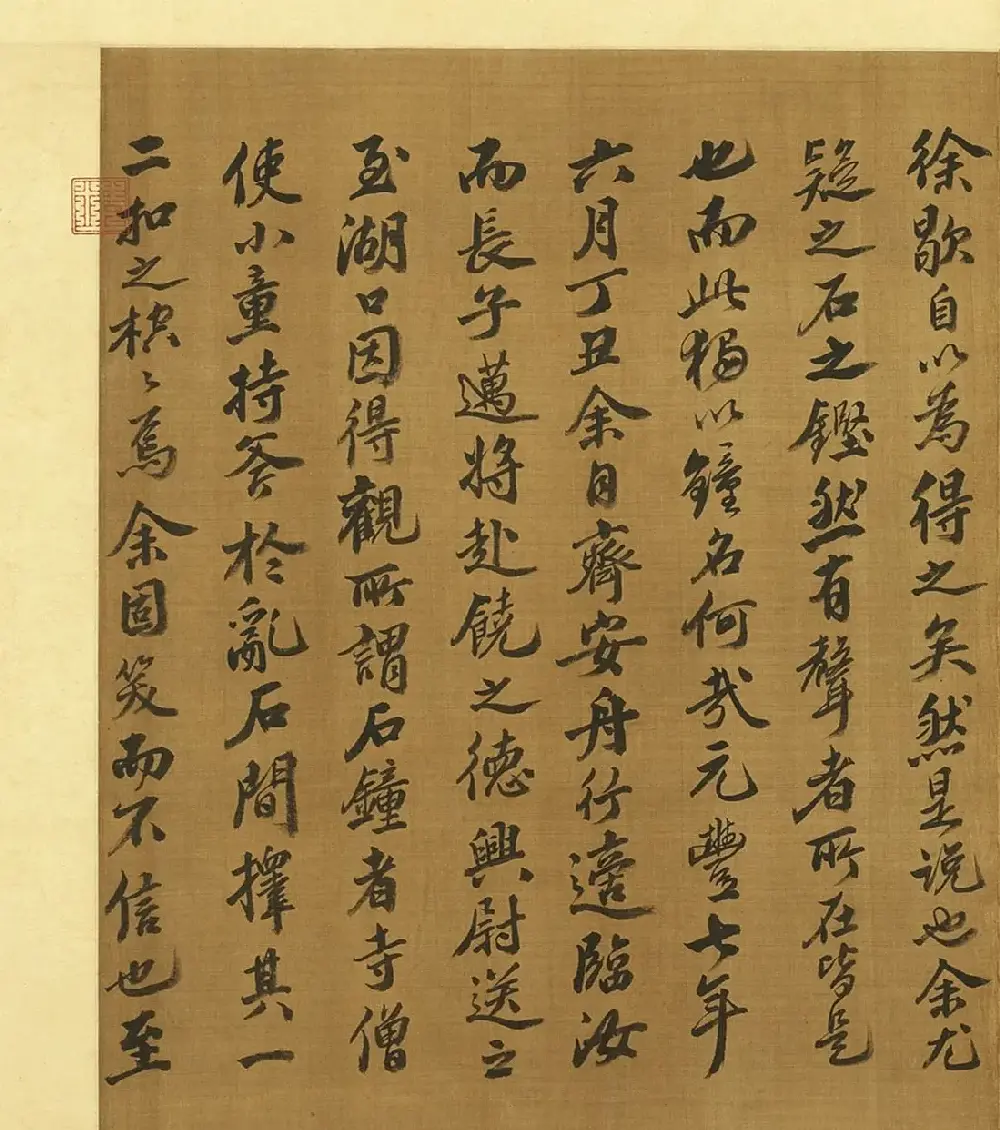 徐歇自以為得之矣然是說也余尤
疑之石之鏗然有聲者所在皆是
也而此獨以鐘名何哉元豐七年
六月丁丑余自齊安舟行適臨汝
而長子邁將赴饒之德興尉送之
至湖口因得觀所謂石鐘者寺僧
使小童持斧於亂石間擇其一
二扣之椌〻焉余固笑而不信也至